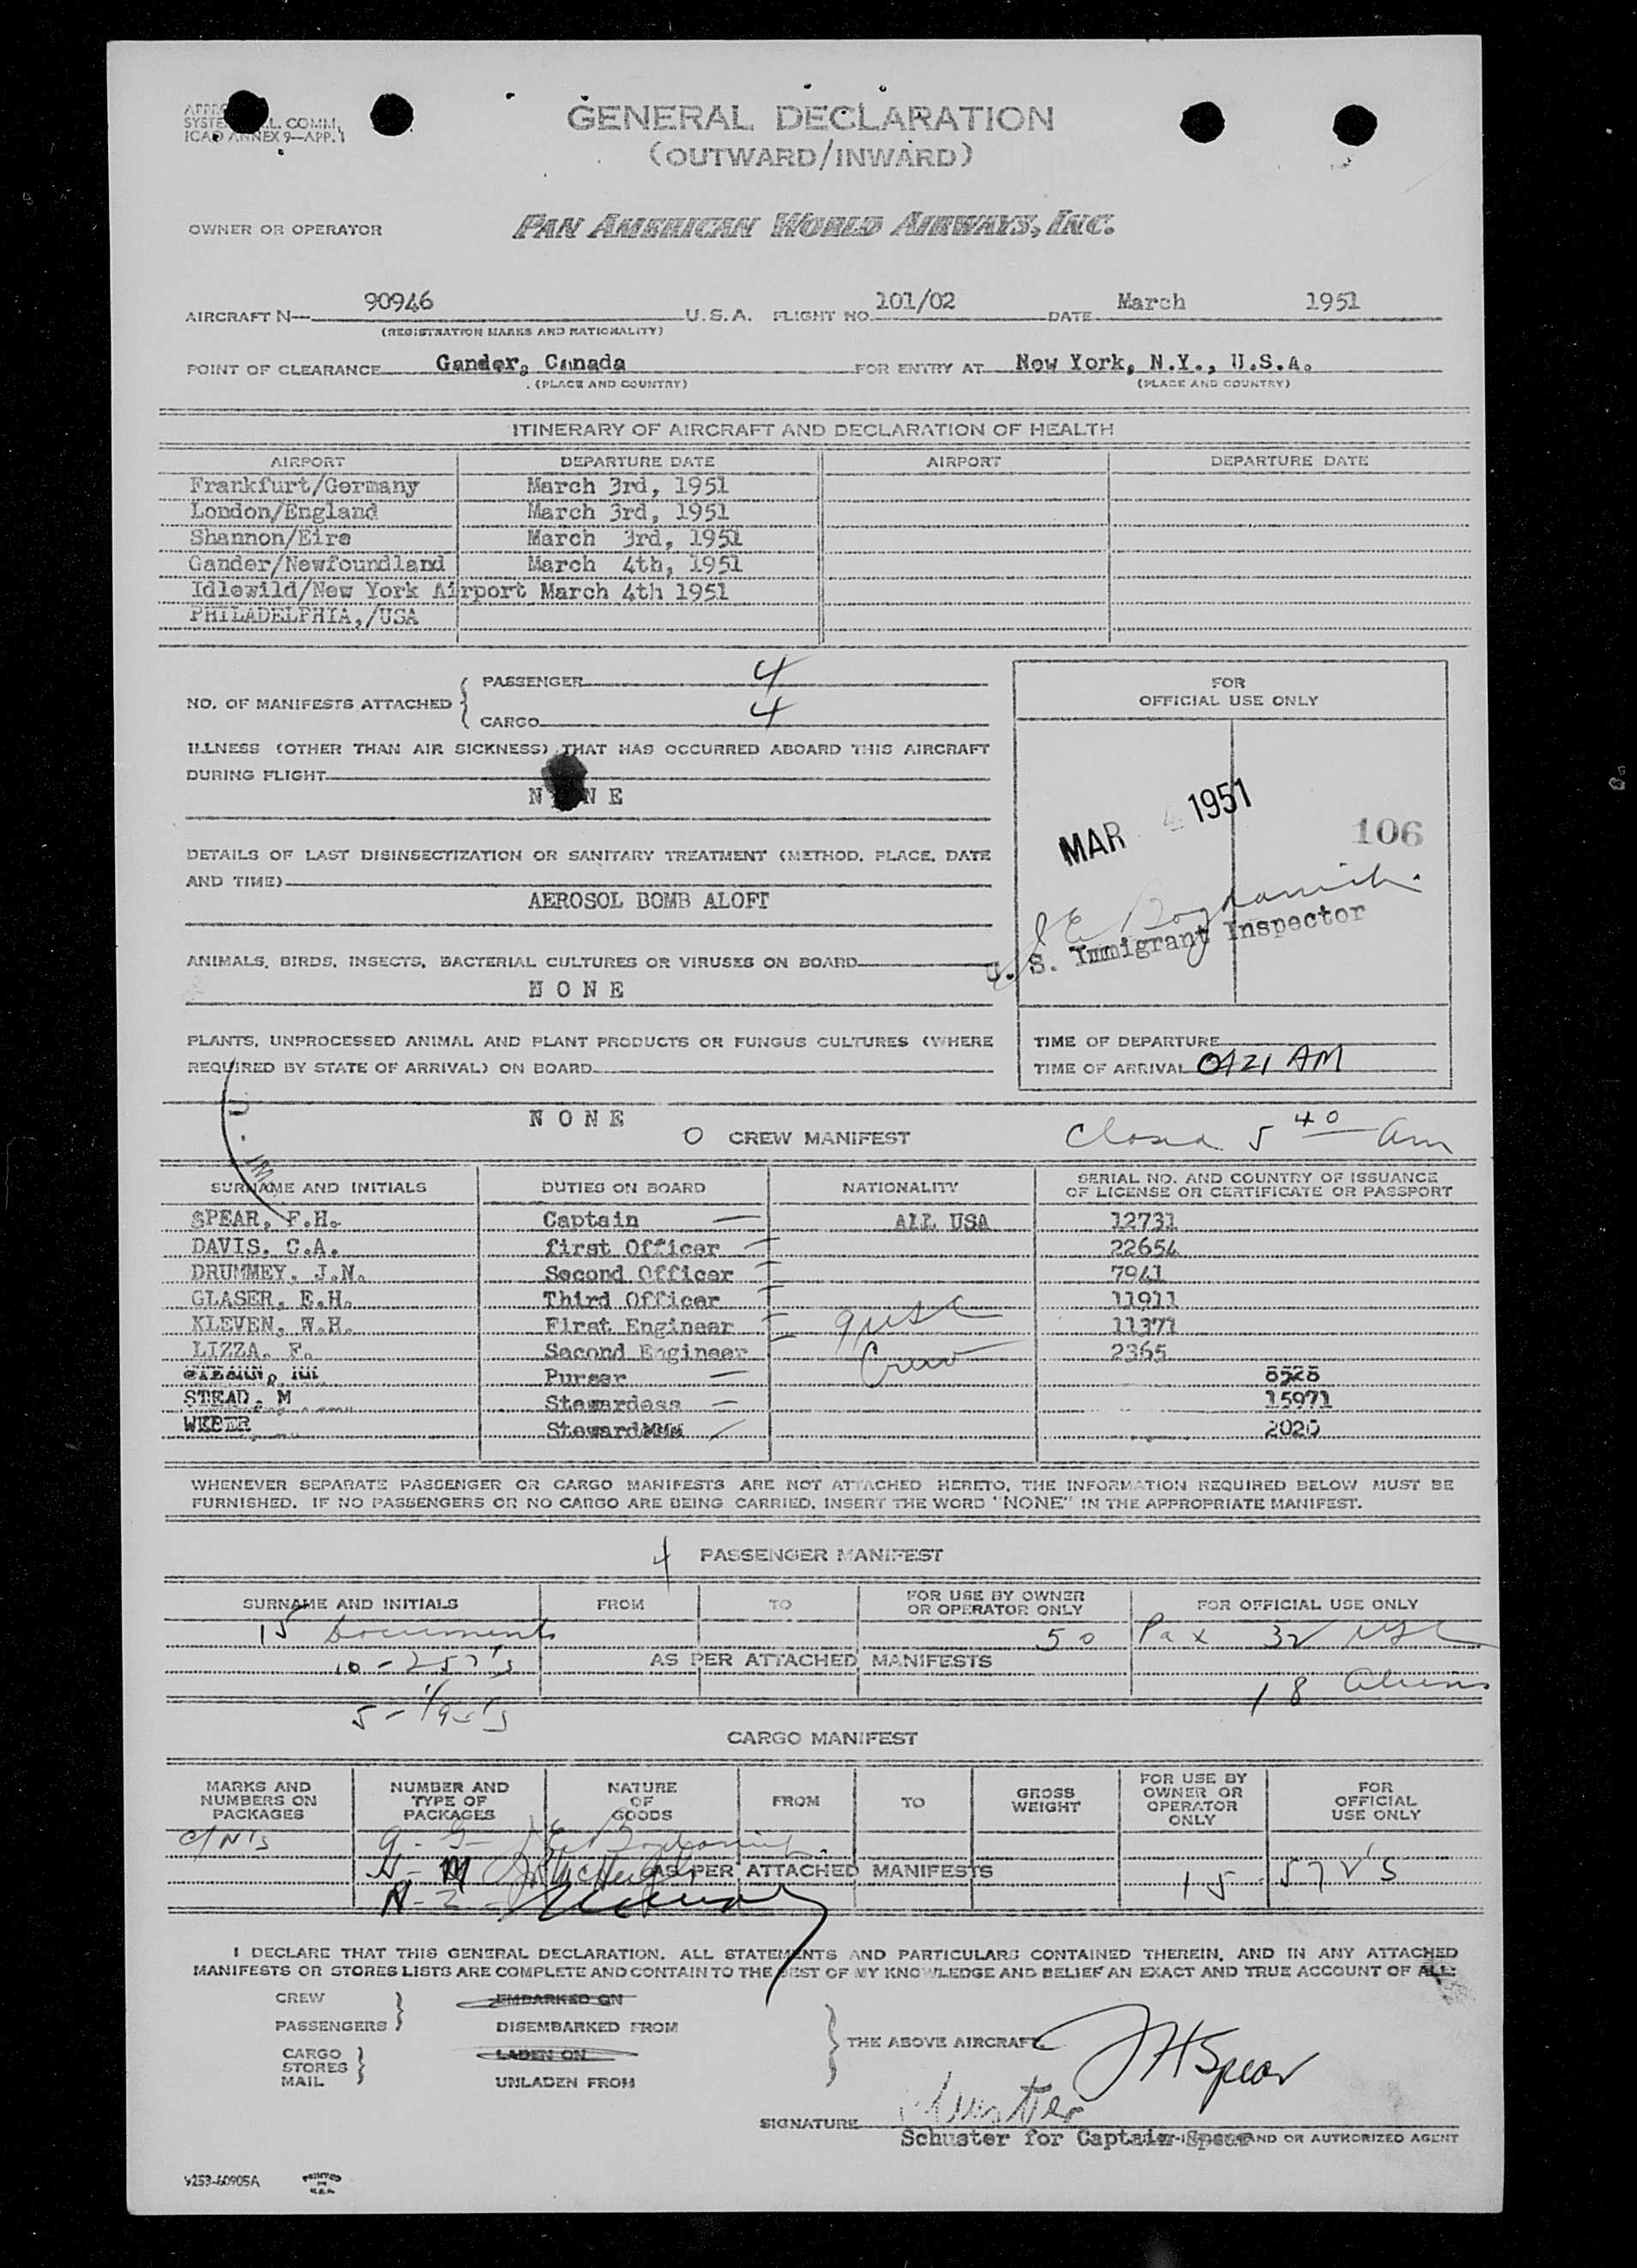 GENERAL DECLARATION
(OUTWARD/INWARD)
L. COMM.
ICAO ANNEX 9—APP. 1
OWNER OR OPERATOR PAN AMERICAN WORLD AIRWAYS, INC.
AIRCRAFT N— 90946 U.S.A. FLIGHT NO. 101/02 DATE March 1951
(REGISTRATION MARKS AND NATIONALITY)
POINT OF CLEARANCE Gander, Canada FOR ENTRY AT New York, N.Y., U.S.A.
(PLACE AND COUNTRY) (PLACE AND COUNTRY)
ITINERARY OF AIRCRAFT AND DECLARATION OF HEALTH
AIRPORT DEPARTURE DATE AIRPORT DEPARTURE DATE
Frankfurt/Germany March 3rd, 1951
London/England March 3rd, 1951
Shannon/Eire March 3rd, 1951
Gander/Newfoundland March 4th, 1951
Idlewild/New York Airport March 4th 1951
PHILADELPHIA,/USA
NO. OF MANIFESTS ATTACHED
PASSENGER 4
CARGO 4
ILLNESS (OTHER THAN AIR SICKNESS) THAT HAS OCCURRED ABOARD THIS AIRCRAFT
DURING FLIGHT
N NE
DETAILS OF LAST DISINSECTIZATION OR SANITARY TREATMENT (METHOD, PLACE, DATE
AND TIME)
AEROSOL BOMB ALOFT
ANIMALS, BIRDS, INSECTS, BACTERIAL CULTURES OR VIRUSES ON BOARD
N O N E
PLANTS, UNPROCESSED ANIMAL AND PLANT PRODUCTS OR FUNGUS CULTURES (WHERE
REQUIRED BY STATE OF ARRIVAL) ON BOARD
N O N E
FOR
OFFICIAL USE ONLY
MAR 4 1951
106
U. S. Immigrant Inspector
TIME OF DEPARTURE
TIME OF ARRIVAL 0421 AM
O CREW MANIFEST Closed 5 40 am
SURNAME AND INITIALS DUTIES ON BOARD NATIONALITY SERIAL NO. AND COUNTRY OF ISSUANCE
OF LICENSE OR CERTIFICATE OR PASSPORT
SPEAR, F.H. Captain ALL USA 12731
DAVIS, C.A. first Officer 22654
DRUMMEY, J.N. Second Officer 7941
GLASER, E.H. Third Officer 11911
KLEVEN, W.H. First Engineer 9 USC 11371
LIZZA, F. Second Engineer Crew 2365
Purser 8528
STEAD, M Stewardess 15971
WEBER Steward 2026
WHENEVER SEPARATE PASSENGER OR CARGO MANIFESTS ARE NOT ATTACHED HERETO, THE INFORMATION REQUIRED BELOW MUST BE
FURNISHED. IF NO PASSENGERS OR NO CARGO ARE BEING CARRIED, INSERT THE WORD "NONE" IN THE APPROPRIATE MANIFEST.
4 PASSENGER MANIFEST
SURNAME AND INITIALS FROM TO FOR USE BY OWNER
OR OPERATOR ONLY FOR OFFICIAL USE ONLY
15 Documents 50 Pax 32 USC
10 - 257's AS PER ATTACHED MANIFESTS
18 Aliens
5 -
CARGO MANIFEST
MARKS AND
NUMBERS ON
PACKAGES
NUMBER AND
TYPE OF
PACKAGES
NATURE
OF
GOODS
FROM
TO
GROSS
WEIGHT
FOR USE BY
OWNER OR
OPERATOR
ONLY
FOR
OFFICIAL
USE ONLY
AS PER ATTACHED MANIFESTS 15
I DECLARE THAT THIS GENERAL DECLARATION, ALL STATEMENTS AND PARTICULARS CONTAINED THEREIN, AND IN ANY ATTACHED
MANIFESTS OR STORES LISTS ARE COMPLETE AND CONTAIN TO THE BEST OF MY KNOWLEDGE AND BELIEF AN EXACT AND TRUE ACCOUNT OF ALL:
CREW
PASSENGERS
EMBARKED ON
DISEMBARKED FROM
CARGO
STORES
MAIL
LADEN ON
UNLADEN FROM
THE ABOVE AIRCRAFT
FHSpear
SIGNATURE Schuster
Schuster for Captain Spear AND OR AUTHORIZED AGENT
V253-60905A
PRINTED
IN
U.S.A.